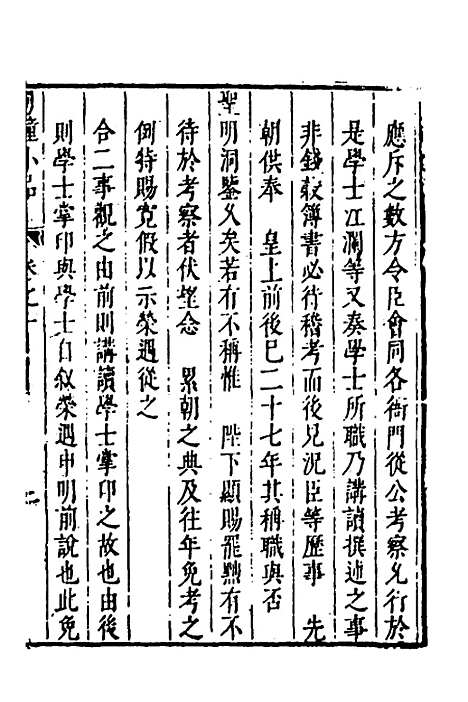 應斥之數方令臣會同各衙門從公考察允行於
是學士江瀾等又奏學士所職乃講讀撰述之事
非錢穀簿書必待稽考而後見況臣等歷事　先
朝供奉　皇上前後已二十七年其稱職與否
聖明洞鑒久矣若有不稱惟　陛下顯賜罷黜有不
待於考察者伏望念　累朝之典及往年免考之
例特賜寬假以示榮遇從之
合二事觀之由前則講讀學士掌印之故也由後
則學士掌印與學士自叙榮遇申明前說也此免
小品